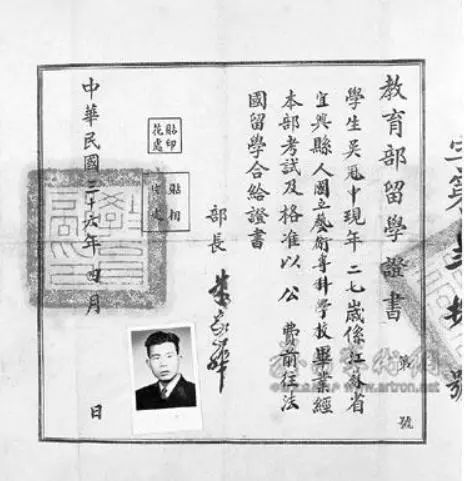 字第
號
教育部留學證書 第 號
學生吳冠中現年二七歲係江蘇省
宜興縣人國立藝術專科學校畢業經
本部考試及格准以公費前往法
國留學合給證書
部長 朱家驊
貼印
花處
貼相
片處
中華民國三十六年四月 日
www.artron.net